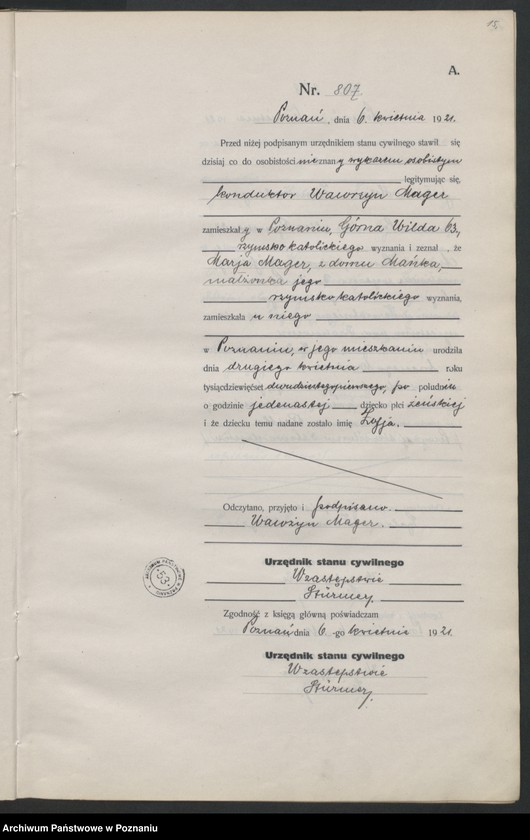 15.
A.
Nr. 807
Poznań, dnia 6. kwietnia 1921.
Przed niżej podpisanym urzędnikiem stanu cywilnego stawił się
dzisiaj co do osobistości nieznany wykazem osobistym
legitymując się,
konduktor Wawrzyn Mager
zamieszkały w Poznaniu, Górna Wilda 63,
rzymsko katolickiego wyznania i zeznał, że
Marja Mager, z domu Mańka,
małżonka jego
rzymsko katolickiego wyznania,
zamieszkała u niego
w Poznaniu, w jego mieszkaniu urodziła
dnia drugiego kwietnia roku
tysiącdziewięćset dwudziestegopierwszego, po południu
o godzinie jedenastej dziecko płci żeńskiej
i że dziecku temu nadane zostało imię Zofja.
Odczytano, przyjęto i podpisano.
Wawrzyn Mager.
Urzędnik stanu cywilnego
W zastępstwie
Stürmer.
Zgodność z księgą główną poświadczam
Poznań dnia 6. -go kwietnia 1921.
Urzędnik stanu cywilnego
W zastępstwie
Stürmer.
ARCHIWUM PAŃSTWOWE W POZNANIU
53
Archiwum Państwowe w Poznaniu